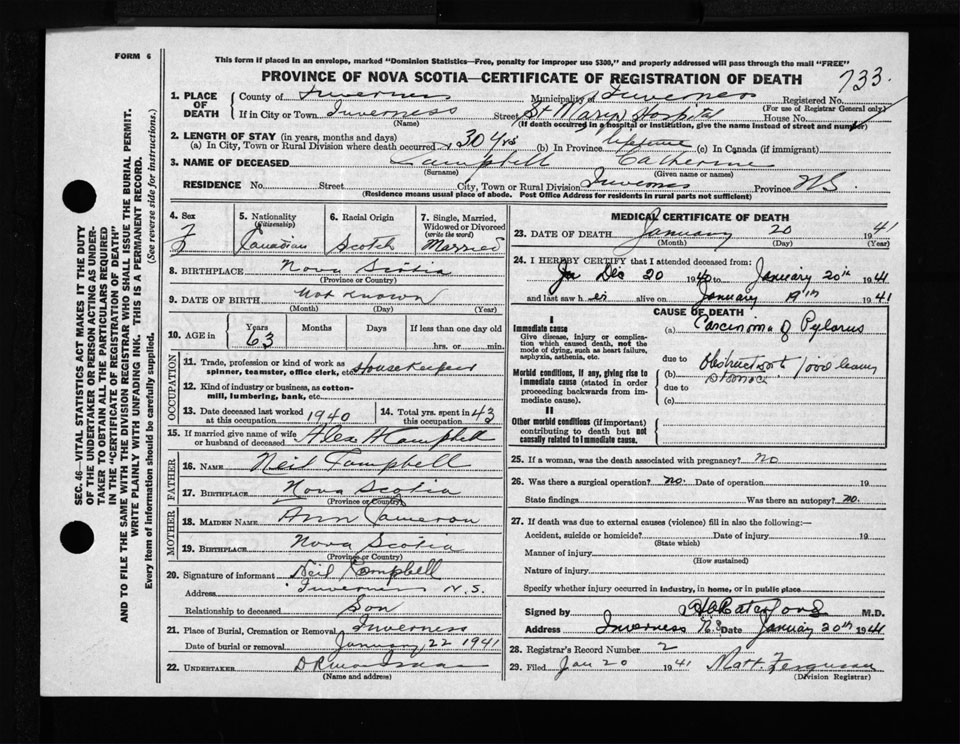 FORM 6
This form if placed in an envelope, marked "Dominion Statistics—Free, penalty for improper use $300," and properly addressed will pass through the mail "FREE"
PROVINCE OF NOVA SCOTIA—CERTIFICATE OF REGISTRATION OF DEATH
733
1. PLACE OF DEATH
County of Inverness Municipality of Inverness Registered No.
(For use of Registrar General only)
If in City or Town Inverness Street St Marys Hospital House No.
(Name) (If death occurred in a hospital or institution, give the name instead of street and number)
2. LENGTH OF STAY (in years, months and days)
(a) In City, Town or Rural Division where death occurred 30 Yrs (b) In Province Lifetime (c) In Canada (if immigrant)
3. NAME OF DECEASED Campbell Catherine
(Surname) (Given name or names)
RESIDENCE No. Street City, Town or Rural Division Inverness Province N.S.
(Residence means usual place of abode. Post Office Address for residents in rural parts not sufficient)
4. Sex F
5. Nationality (Citizenship) Canadian
6. Racial Origin Scotch
7. Single, Married, Widowed or Divorced (write the word) Married
8. BIRTHPLACE Nova Scotia
(Province or Country)
9. DATE OF BIRTH Not Known
(Month) (Day) (Year)
10. AGE in Years 63 Months Days If less than one day old
hrs. or min.
OCCUPATION
11. Trade, profession or kind of work as spinner, teamster, office clerk, etc. Housekeeper
12. Kind of industry or business, as cotton-mill, lumbering, bank, etc.
13. Date deceased last worked at this occupation 1940
14. Total yrs. spent in this occupation 43
15. If married give name of wife or husband of deceased Alex H Campbell
FATHER
16. NAME Neil Campbell
17. BIRTHPLACE Nova Scotia
(Province or Country)
MOTHER
18. MAIDEN NAME Ann Cameron
19. BIRTHPLACE Nova Scotia
(Province or Country)
20. Signature of informant Neil Campbell
Address Inverness N.S.
Relationship to deceased Son
21. Place of Burial, Cremation or Removal Inverness
Date of burial or removal January 22 1941
22. UNDERTAKER
(Name and address)
MEDICAL CERTIFICATE OF DEATH
23. DATE OF DEATH January 20 1941
(Month) (Day) (Year)
24. I HEREBY CERTIFY that I attended deceased from:
Dec 20 1940 to January 20th 1941
and last saw her alive on January 19th 1941
CAUSE OF DEATH
I
Immediate cause
Give disease, injury or complication which caused death, not the mode of dying, such as heart failure, asphyxia, asthenia, etc.
(a) Carcinoma of Pylorus
due to
Morbid conditions, if any, giving rise to immediate cause (stated in order proceeding backwards from immediate cause).
(b) food leaving stomach
due to
(c)
II
Other morbid conditions (if important) contributing to death but not causally related to immediate cause.
25. If a woman, was the death associated with pregnancy? No
26. Was there a surgical operation? No. Date of operation 19
State findings Was there an autopsy? No.
27. If death was due to external causes (violence) fill in also the following:—
Accident, suicide or homicide? Date of injury 19
(State which)
Manner of injury
(How sustained)
Nature of injury
Specify whether injury occurred in industry, in home, or in public place
Signed by M.D.
Address Inverness N.S. Date January 20th 1941
28. Registrar's Record Number 2
29. Filed Jan 20 1941 Matt. Ferguson
(Division Registrar)
SEC. 46—VITAL STATISTICS ACT MAKES IT THE DUTY
OF THE UNDERTAKER OR PERSON ACTING AS UNDER-
TAKER TO OBTAIN ALL THE PARTICULARS REQUIRED
IN THE "CERTIFICATE OF REGISTRATION OF DEATH"
AND TO FILE THE SAME WITH THE DIVISION REGISTRAR WHO SHALL ISSUE THE BURIAL PERMIT.
WRITE PLAINLY WITH UNFADING INK. THIS IS A PERMANENT RECORD.
Every item of information should be carefully supplied. (See reverse side for instructions.)